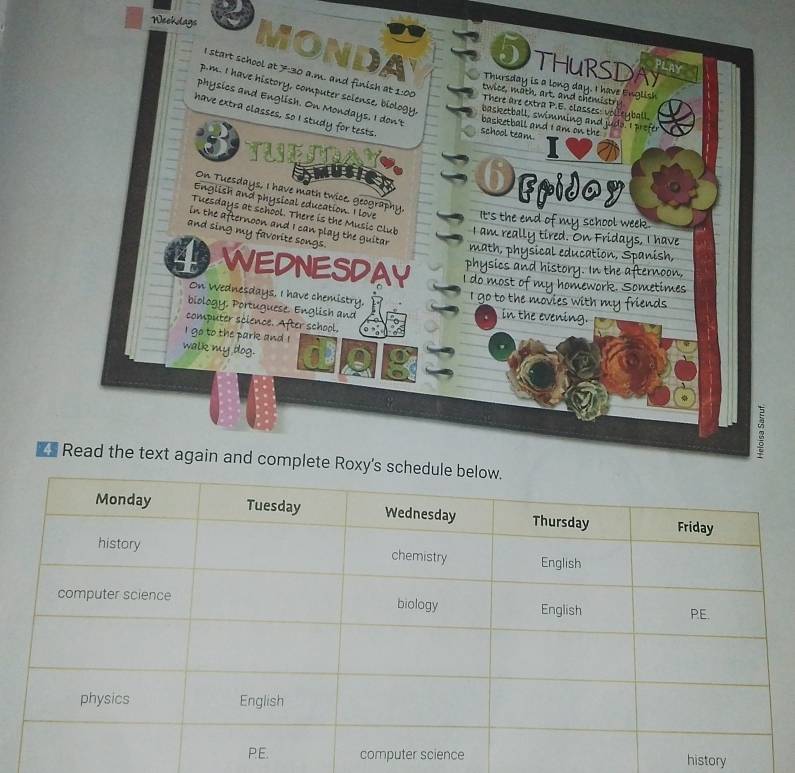 Weekdays
2
MONDAY
I start school at 7:30 a.m. and finish at 1:00
p.m. I have history, computer sciense, biology,
physics and English. On Mondays, I don't
have extra classes, so I study for tests.
3
TUESDAY
MUSIC
On Tuesdays, I have math twice, geography,
English and physical education. I love
Tuesdays at school. There is the Music Club
in the afternoon and I can play the guitar
and sing my favorite songs.
4
WEDNESDAY
On Wednesdays, I have chemistry,
biology, Portuguese, English and
computer science. After school,
I go to the park and I
walk my dog.
dog
5
THURSDAY
PLAY
Thursday is a long day. I have English
twice, math, art, and chemistry.
There are extra P.E. classes: volleyball,
basketball, swimming and judo. I prefer
basketball and I am on the
school team.
I
6
Friday
It's the end of my school week.
I am really tired. On Fridays, I have
math, physical education, Spanish,
physics and history. In the afternoon,
I do most of my homework. Sometimes
I go to the movies with my friends
in the evening.
Heloisa Sarruf.
4 Read the text again and complete Roxy's schedule below.
Monday Tuesday Wednesday Thursday Friday
history chemistry English
computer science biology English P.E.
physics English
P.E. computer science history